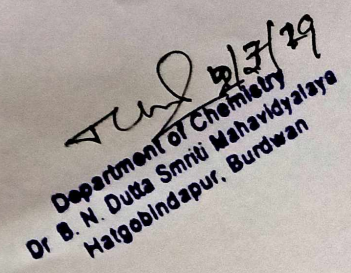 Department of Chemistry
Dr B. N. Dutta Smriti Mahavidyalaya
Hatgobindapur, Burdwan